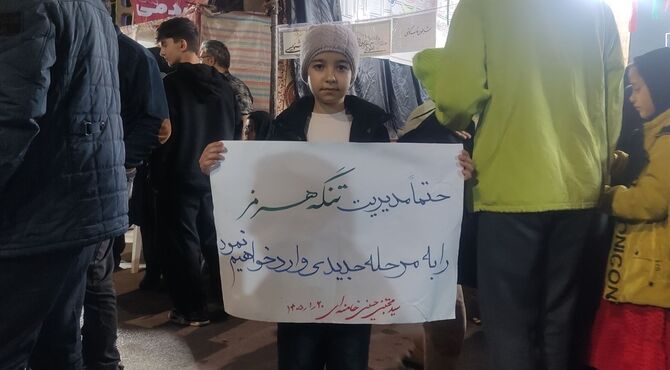 حتماً مدیریت تنگه هرمز
را به مرحله جدیدی وارد خواهیم نمود
سید مجتبی حسینی خامنه‌ای